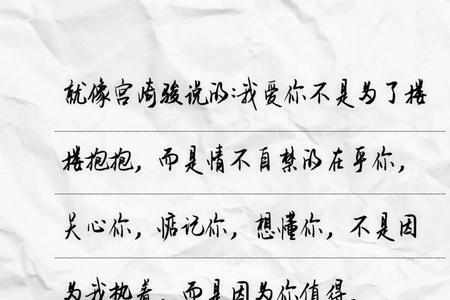 就像宫崎骏说的:我爱你不是为了搂
搂抱抱，而是情不自禁的在乎你，
关心你，惦记你，想懂你，不是因
为我执着，而是因为你值得。